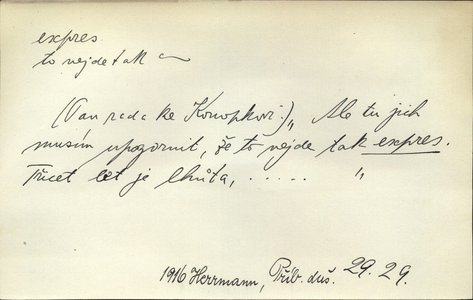 expres
to nejde tak ~
(Vanrada ke Konopkovi:) „ Ale tu jich
musím upozornit, že to nejde tak expres.
Třicet let je lhůta, ..... "
1916 Herrmann, Příb. duš. 29. 29.